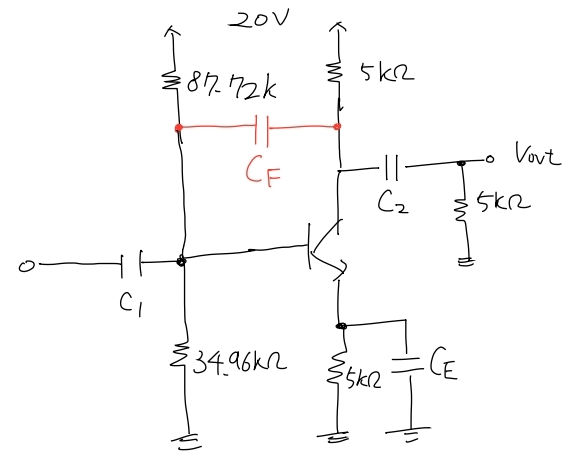 20V
87.72k
5kΩ
CF
C2
Vout
5kΩ
C1
34.96kΩ
5kΩ
CE